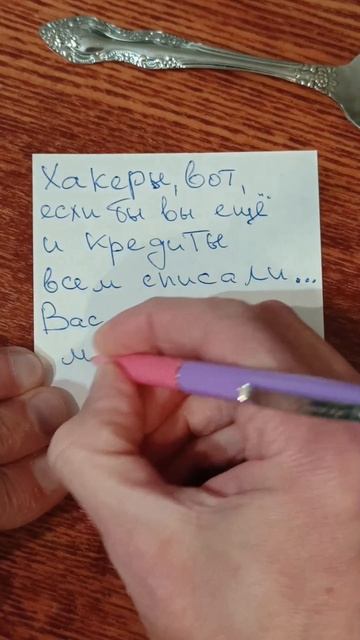 Хакеры, вот,
если бы вы ещё
и кредиты
всем списали...
Вас
м